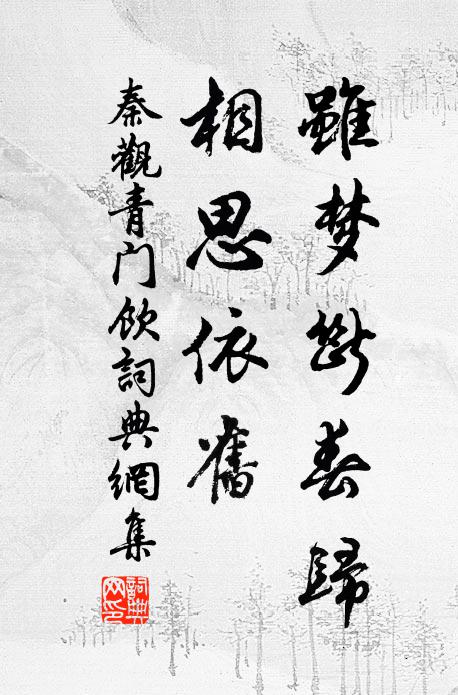 雖梦斷春歸
相思依舊
秦觀青门飲詞典網集
詞典網印